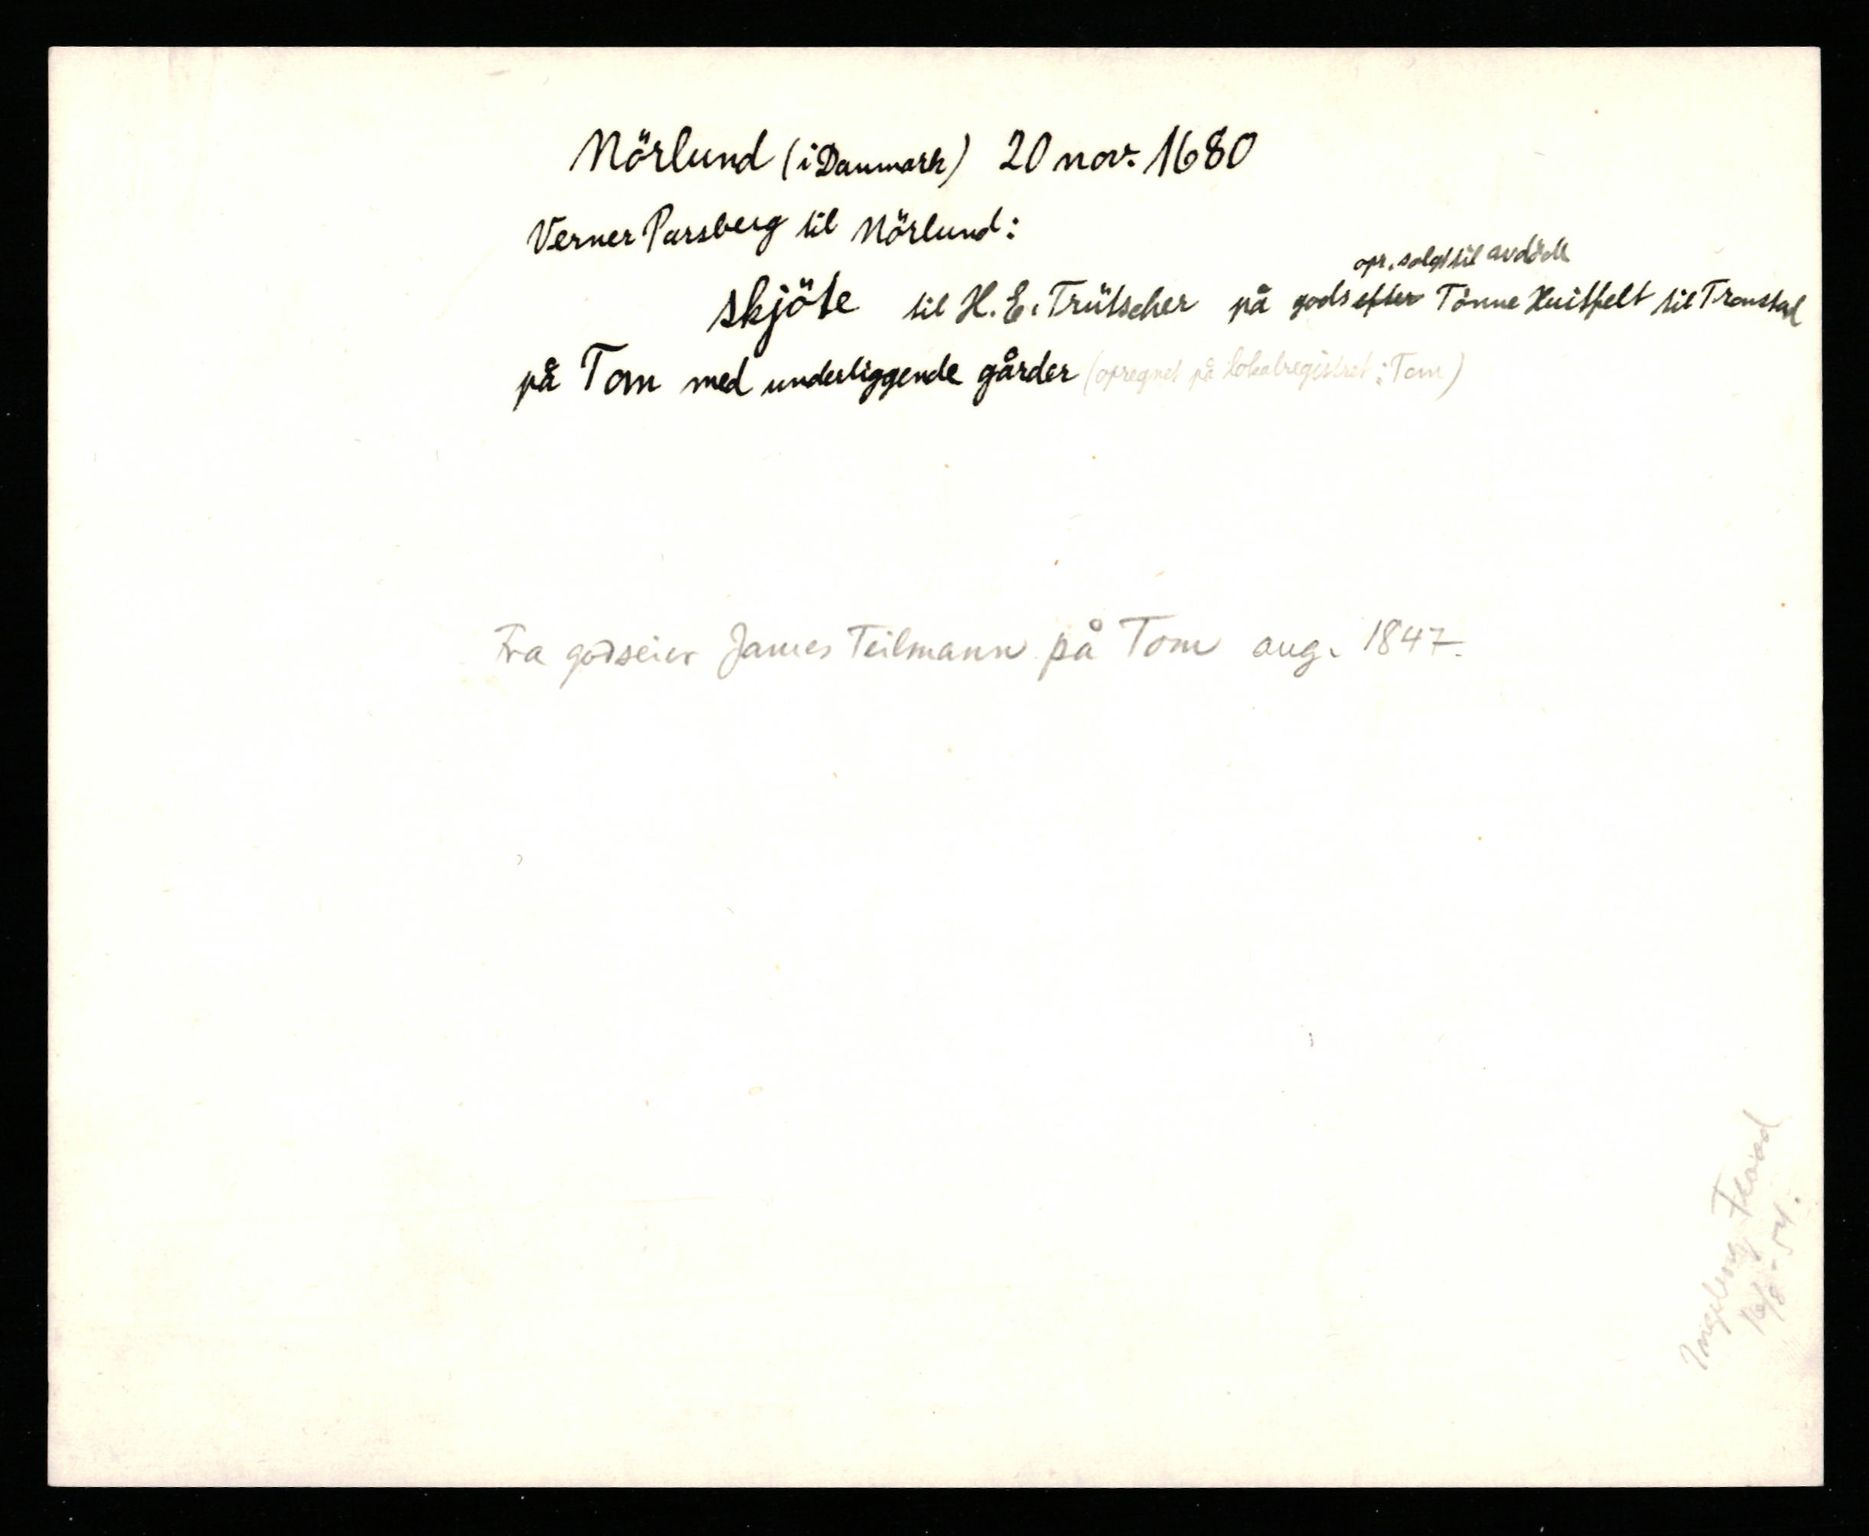 Nörlund (i Danmark) 20 nov. 1680
Verner Parsberg til Nörlund:
opr. solgt til avdöde
skjöte til H. E. Trütscher på gods efter Tönne Huitfelt til Tronstad
på Tom med underliggende gårder (opregnet på lokalregistret: Tom)
Fra godseier James Teilmann på Tom aug. 1847.
Ingeborg Flood
16/8-54.